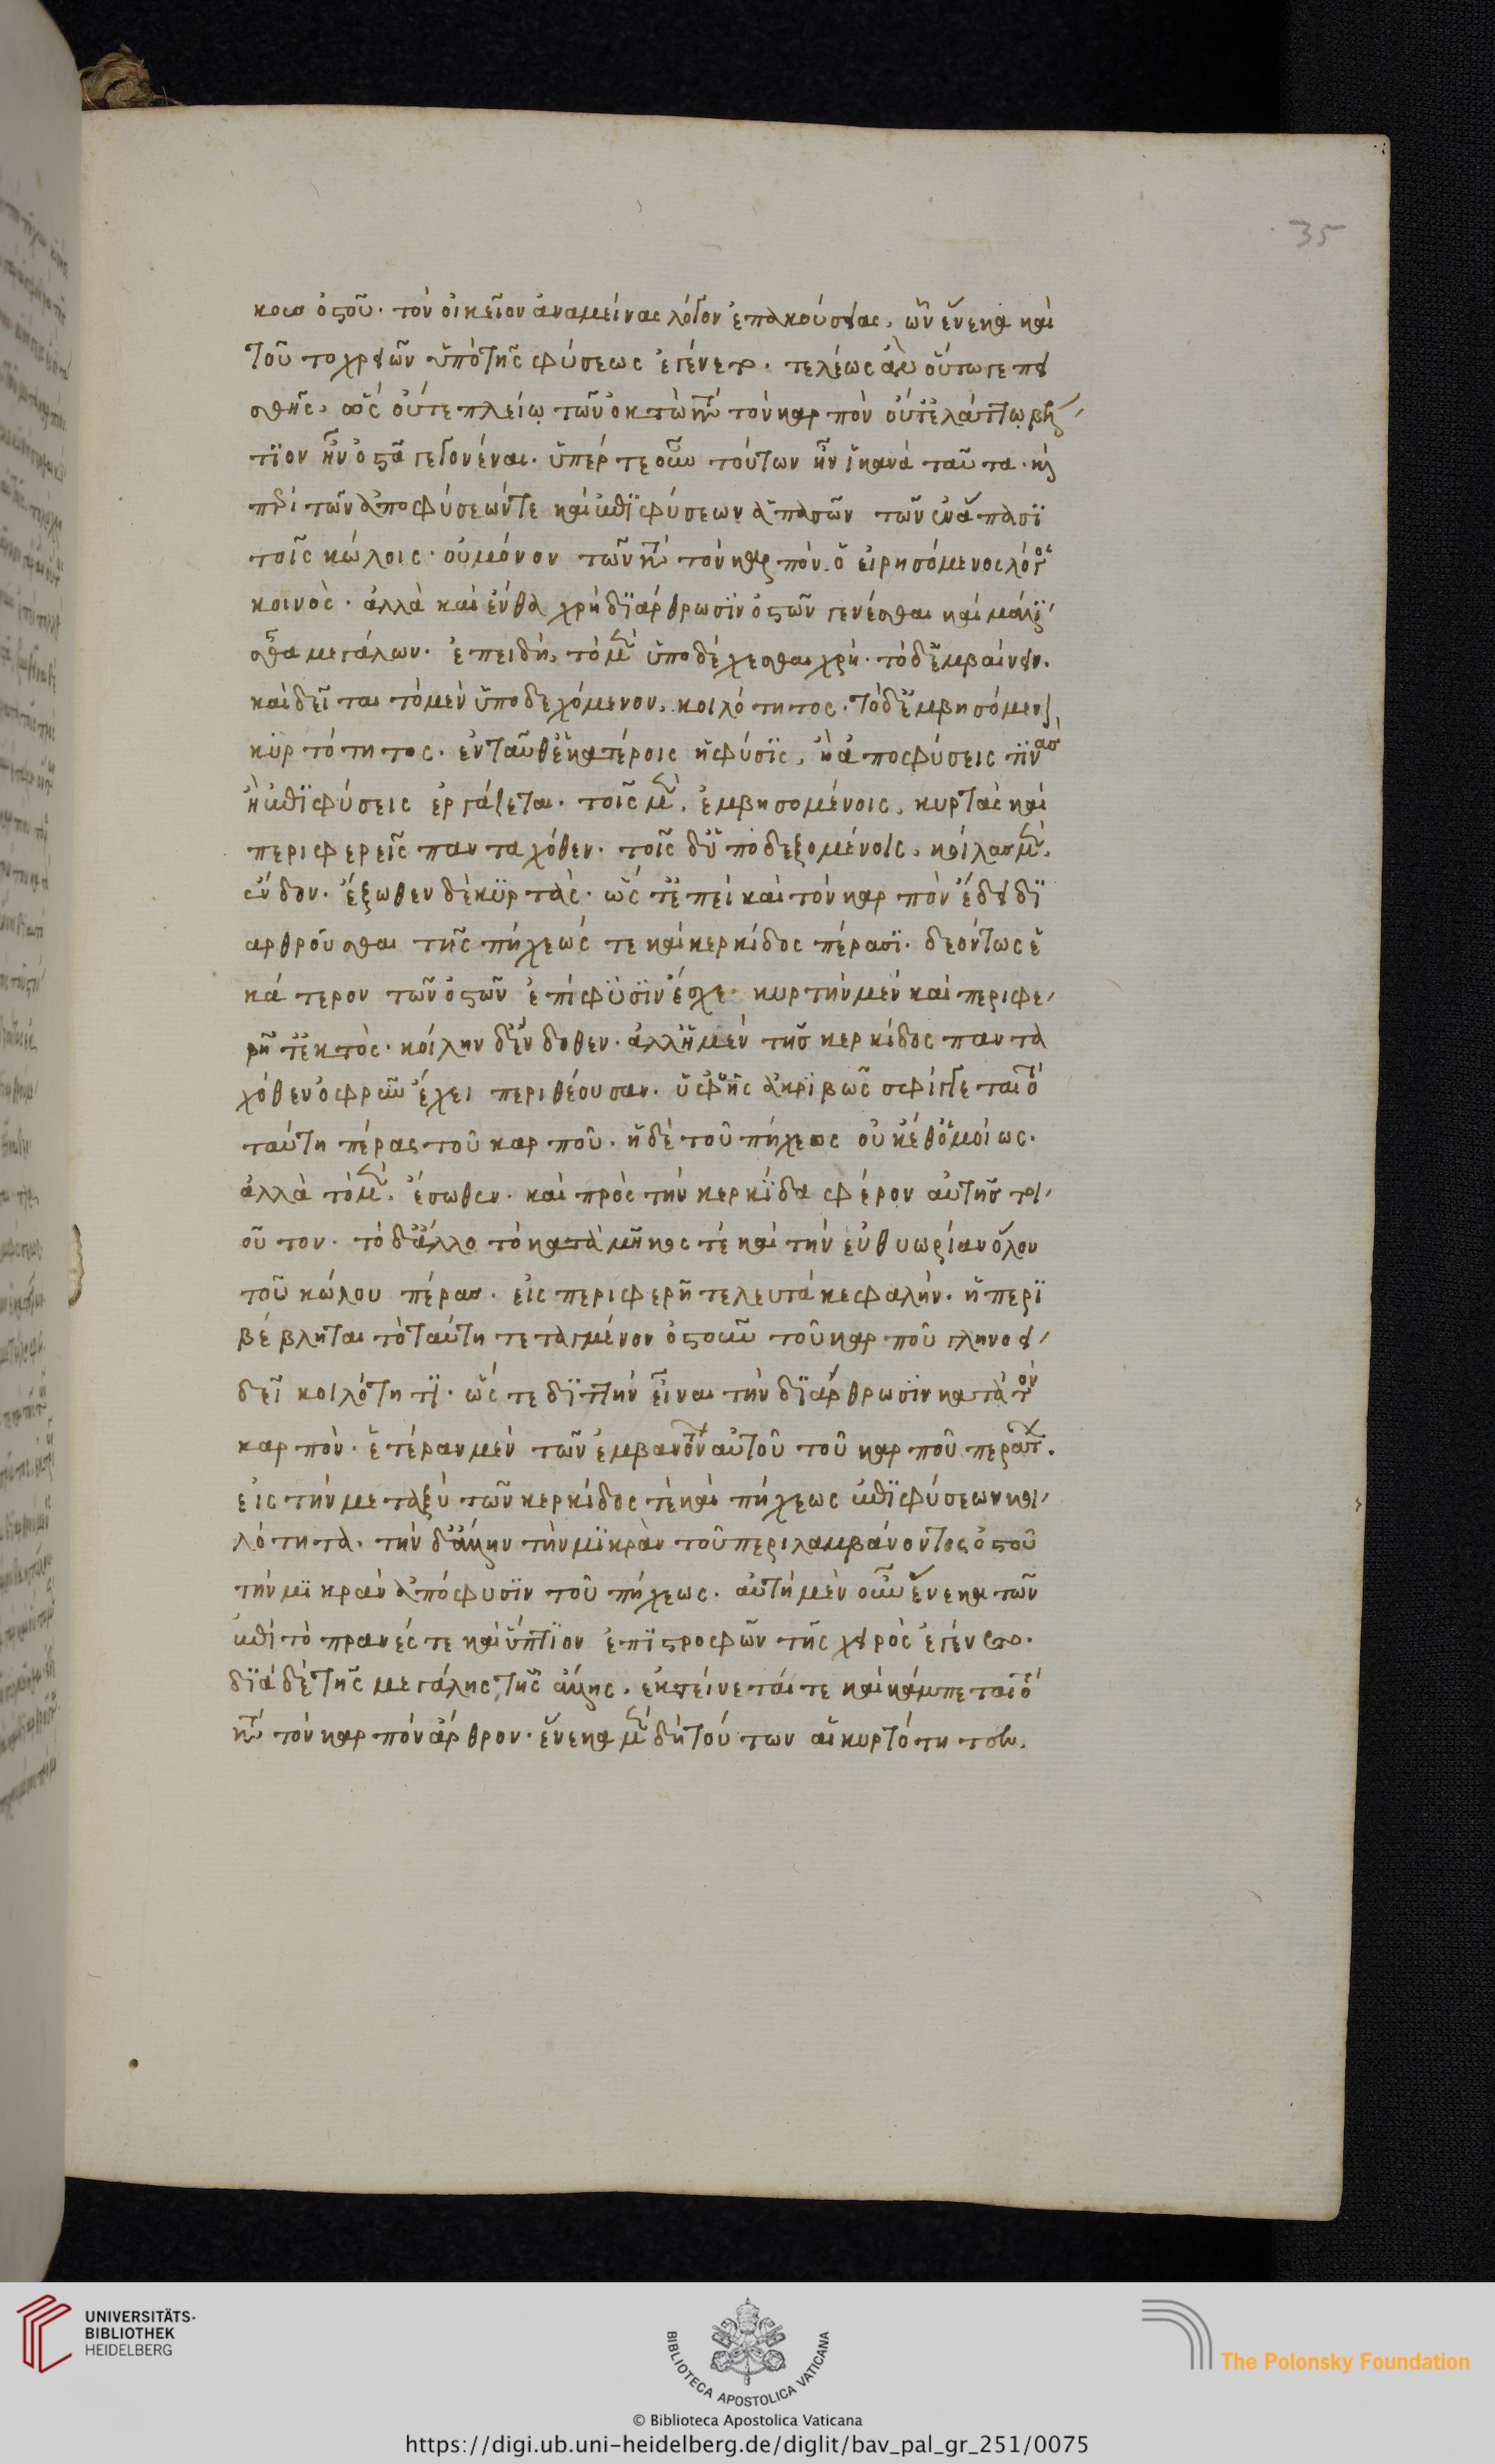 35
κοισ ὀστοῦ· τὸν οἰκεῖον ἀναμείνας λόγον ἐπακούσεις, ὧν ἕνεκα καὶ
τοῦτο χρειῶν ὑπὸ τῆς φύσεως ἐγένετο· τελέως ἂν οὕτω γε πει
σθῇς, ὡς οὔτε πλείω τῶν ὀκτὼ κατὰ τὸν καρπὸν οὔτ' ἐλάττω βέλ
τιον ἦν ὀστᾶ γεγονέναι· ὑπέρ τε οὖν τούτων ἦν ἱκανὰ ταῦτα· καὶ
περὶ τῶν ἀποφύσεών τε καὶ ἐπιφύσεων ἁπασῶν τῶν ἐν ἅπασι
τοῖς κώλοις· οὐ μόνον τῶν κατὰ τὸν καρπὸν ὁ εἰρησόμενος λόγος
κοινὸς· ἀλλὰ καὶ ἔνθα χρὴ διάρθρωσιν ὀστῶν γενέσθαι καὶ μάλι
σθα μεγάλων· ἐπειδὴ, τὸ μὲν ὑποδέχεσθαι χρὴ· τὸ δ' ἐμβαίνειν·
καὶ δεῖται τὸ μὲν ὑποδεχόμενον, κοιλότητος· τὸ δ' ἐμβησόμενον
κυρτότητος· ἐνταῦθ' ἑκατέροις ἡ φύσις, ἢ ἀποφύσεις τινὰσ
ἢ ἐπιφύσεις ἐργάζεται· τοῖς μὲν, ἐμβησομένοις, κυρτὰς καὶ
περιφερεῖς πανταχόθεν· τοῖς δ' ὑποδεξομένοις, κοίλασ μὲν,
ἔνδον· ἔξωθεν δὲ κυρτὰς· ὥς τ' ἐπεὶ καὶ τὸν καρπὸν ἔδει δι
αρθροῦσθαι τῆς πήχεώς τε καὶ κερκίδος πέρασι· δεόντως ἑ
κάτερον τῶν ὀστῶν ἐπίφυσιν ἔσχε· κυρτὴν μὲν καὶ περιφε
ρῆ τ' ἐκτὸς· κοίλην δ' ἔνδοθεν· ἀλλ' ἡ μὲν τῆσ κερκίδος παντα
χόθεν ὀφρῦν ἔχει περιθέουσαν· ὑφ' ἧς ἀκριβῶς σφίγγεται τὸ
ταύτη πέρας τοῦ καρποῦ· ἡ δὲ τοῦ πήχεως οὐκέθ' ὁμοίως·
ἀλλὰ τὸ μὲν, ἔσωθεν· καὶ πρὸς τὴν κερκίδα φέρον αὐτῆσ τοι
οῦτον· τὸ δ' ἄλλο τὸ κατὰ μῆκος τὲ καὶ τὴν εὐθυωρίαν ὅλου
τοῦ κώλου πέρασ· εἰς περιφερῆ τελευτᾶ κεφαλήν· ἣ περι
βέβληται τὸ ταύτη τεταγμένον ὀστοῦν τοῦ καρποῦ γληνοει
δεῖ κοιλότητι· ὥς τε διττὴν εἶναι τὴν διάρθρωσιν κατὰ τὸν
καρπὸν· ἑτέραν μὲν τῶν ἐμβαινόντων αὐτοῦ τοῦ καρποῦ περάτων·
εἰς τὴν μεταξὺ τῶν κερκίδος τὲ καὶ πήχεως ἐπιφύσεων κοι
λότητα, τὴν δ' ἄλλην τὴν μικρὰν τοῦ περιλαμβάνοντος ὀστοῦ
τὴν μικρὰν ἀπόφυσιν τοῦ πήχεως· αὐτὴ μὲν οὖν ἕνεκα τῶν
ἐπὶ τὸ πρανές τε καὶ ὕπτιον ἐπιστροφῶν τῆς χειρὸς ἐγένετο·
διὰ δὲ τῆς μεγάλης τῆς ἄλλης, ἐκτείνεταί τε καὶ κάμπεται τὸ
κατὰ τὸν καρπὸν ἄρθρον· ἕνεκα μὲν δὴ τούτων αἱ κυρτότητεσ,
UNIVERSITÄTS-
BIBLIOTHEK
HEIDELBERG
BIBLIOTECA APOSTOLICA VATICANA
The Polonsky Foundation
© Biblioteca Apostolica Vaticana
https://digi.ub.uni-heidelberg.de/diglit/bav_pal_gr_251/0075